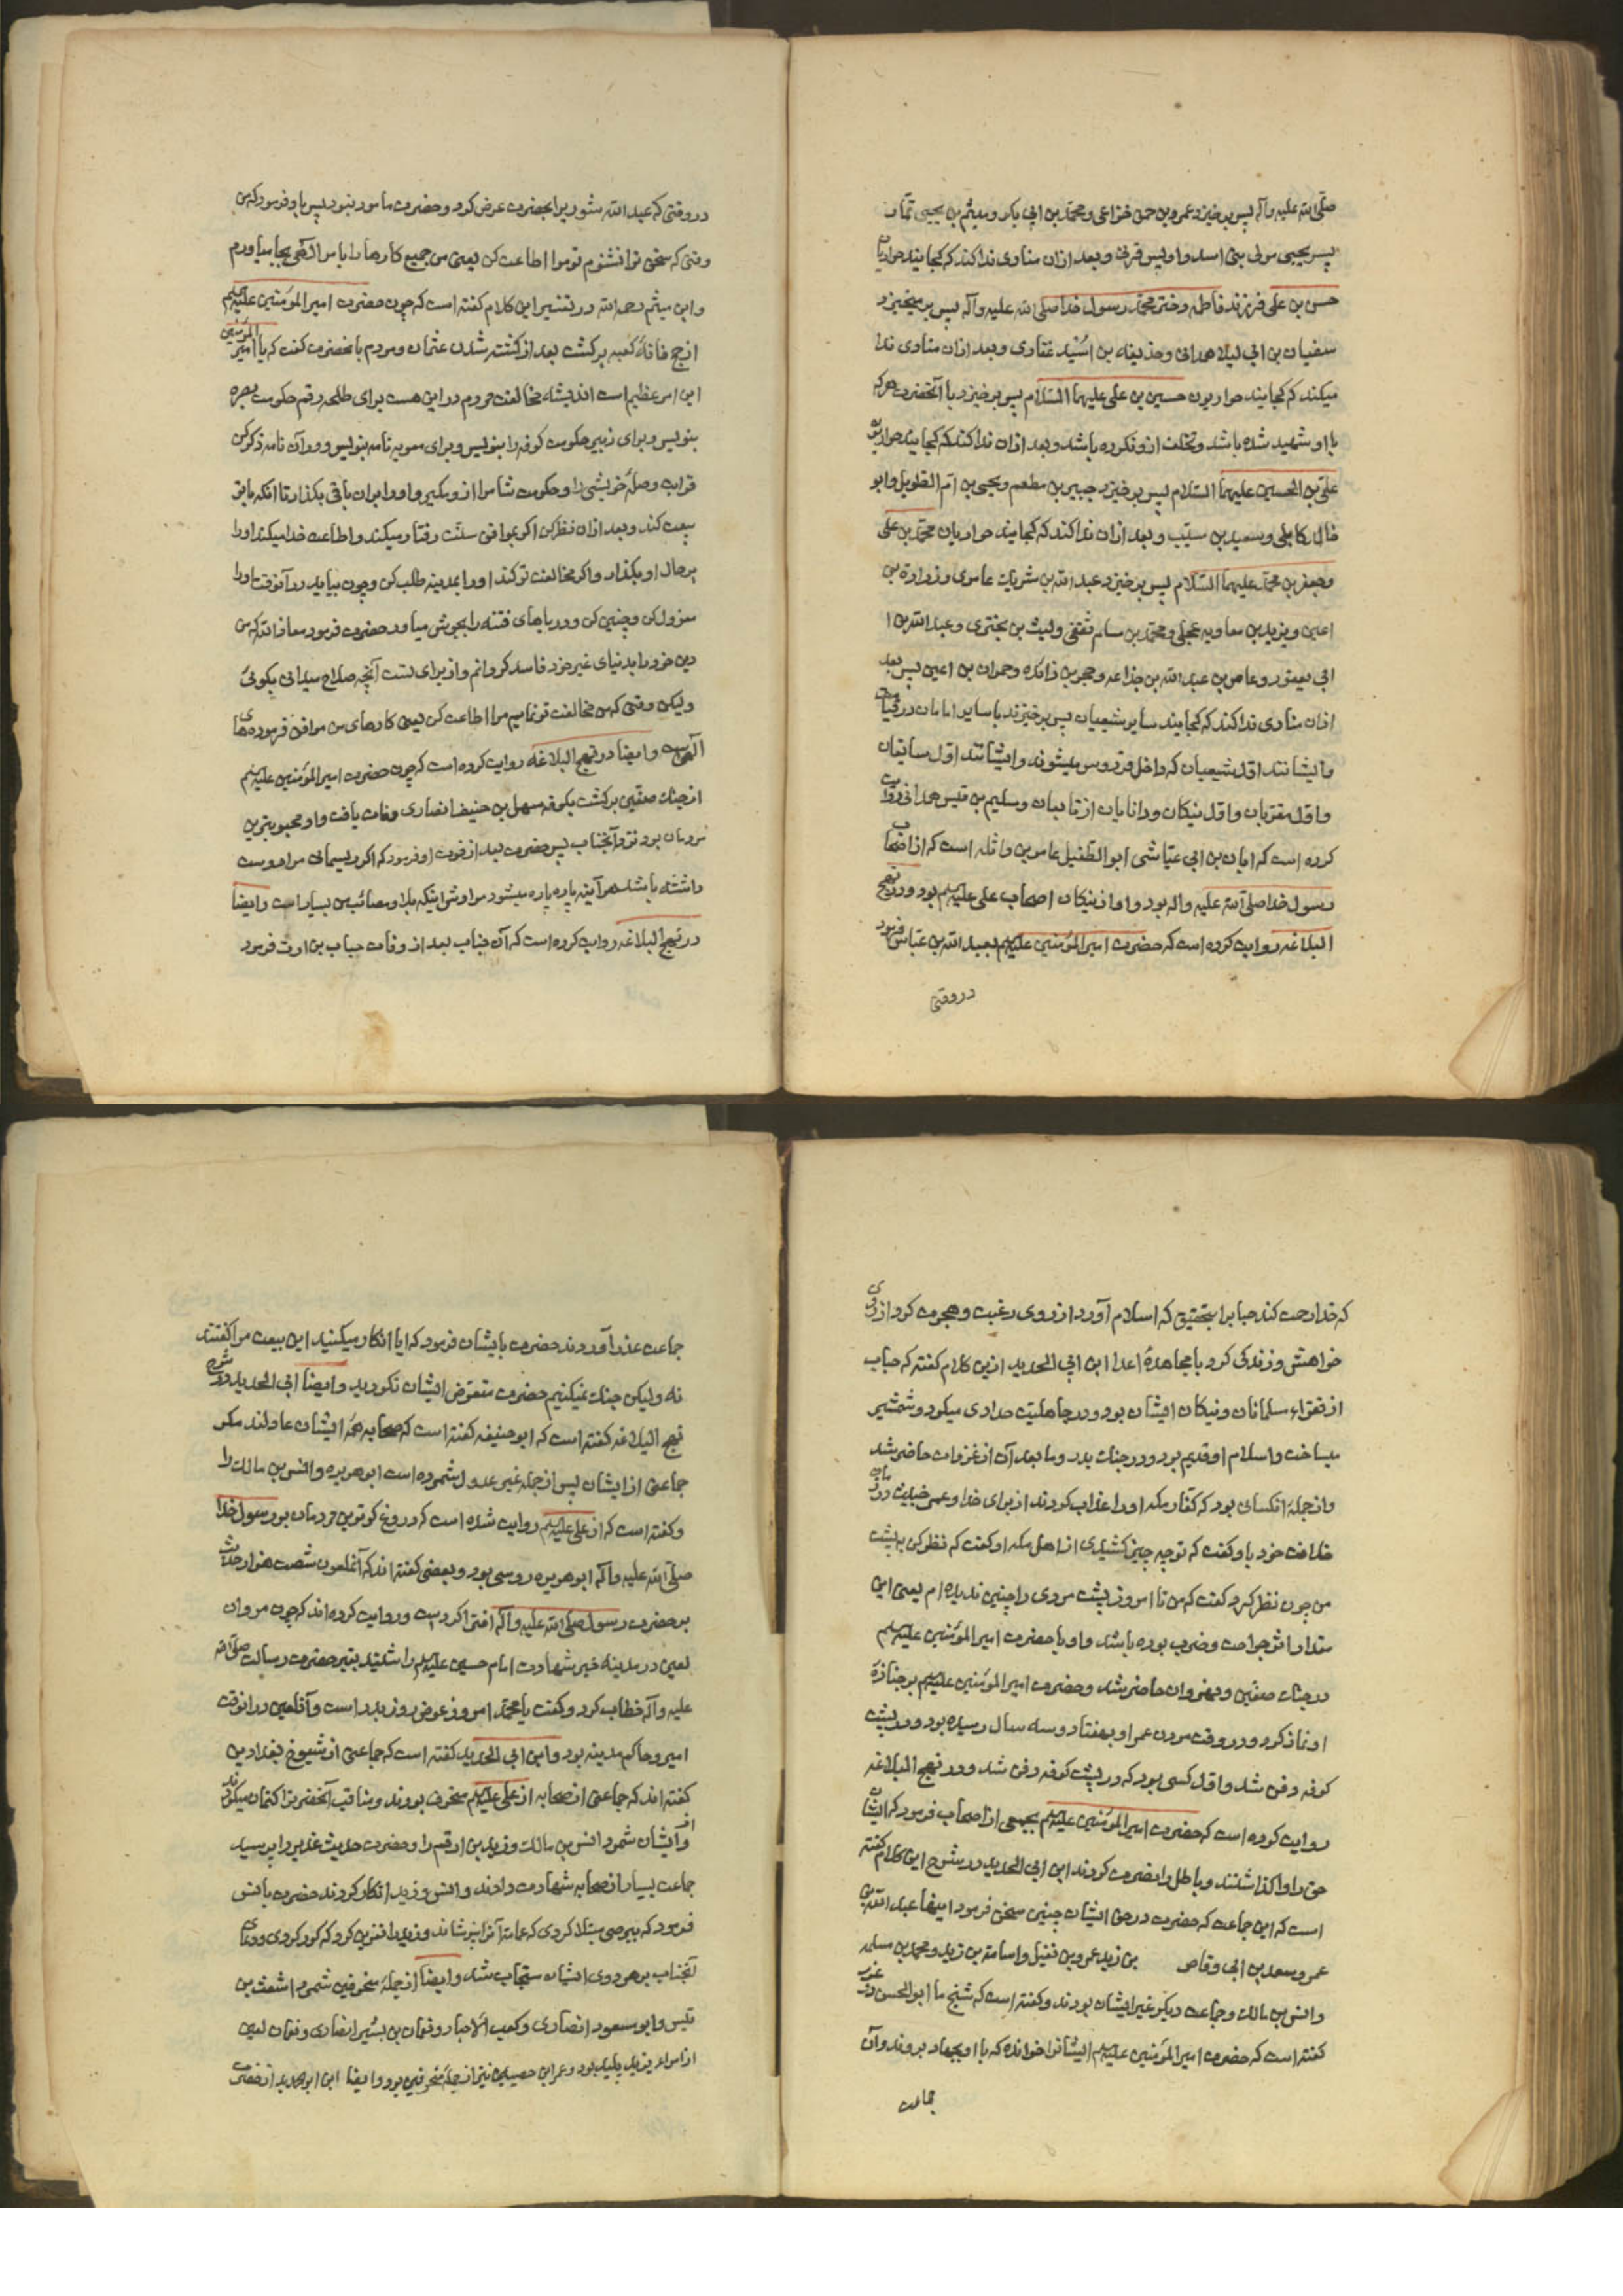 صلّی الله علیه وآله پس برخیزد عمرو بن حمق خزاعی ومحمّد بن ابی بکر ومیثم بن یحیی تمّار
پسر یحیی مولی بنی اسد واویس قرنی وبعد ازان منادی ندا کند که کجایند حواریان
حسن بن علی فرزند فاطمه دختر محمّد رسول خدا صلی الله علیه وآله پس برمیخیزد
سفیان بن ابی لیلا همدانی وحذیفه بن اُسَید غفاری وبعد ازان منادی ندا
میکند که کجایند حواریون حسین بن علی علیهما السّلام پس برخیزد با آنحضرت هرکه
با او شهید شده باشد وتخلف ازو نکرده باشد وبعد ازان ندا کند که کجایند حواریون
علیّ بن الحسین علیهما السّلام پس برخیزد جبیر بن مطعم ویحیی بن امّ الطویل وابو
خالد کابلی وسعید بن مسیّب وبعد ازان ندا کند که کجایند حواریان محمّد بن علی
وجعفر بن محمّد علیهما السّلام پس برخیزد عبد الله بن شریک عامری وزرارة بن
اعین ویزید بن معاویه عجلی ومحمّد بن مسلم ثقفی ولیث بن بختری وعبد الله بن
ابی یعفور وعامر بن عبد الله بن جذاعه وحجر بن زائده وحمران بن اعین پس بعد
ازان منادی ندا کند که کجایند سایر شیعیان پس برخیزند با سایر امامان در قیامت
وایشانند اوّل شیعیان که داخل فردوس میشوند وایشانند اوّل سابقان
واوّل مقربان واوّل نیکان ودانایان از تابعان وسلیم بن قیس هلالی روایت
کرده است که ابان بن ابی عیّاشی ابو الطّفیل عامر بن واثله است که از اصحاب
رسول خدا صلی الله علیه واله بود واو از نیکان اصحاب علی علیه السلم بود ودر نهج
البلاغه روایت کرده است که حضرت امیر المؤمنین علیه السلم بعبد الله بن عبّاس فرمود
دروقتی
دروقتی که عبد الله مشوره برای حضرت عرض کرد وحضرت مامور نبود پس باو فرمود که من
وقتی که سخن ترا نشنوم تو مرا اطاعت کن یعنی من جمیع کارها را بامر الآهی بجا میاورم
وابن میثم رحمه الله در تفسیر این کلام گفته است که چون حضرت امیر المؤمنین علیه السلم
از حج خانه کعبه برگشت بعد از کشته شدن عثمان ومردم بانحضرت گفت که یا امیر المؤمنین
این امر عظیم است اندیشه مخالفت مردم در این هست برای طلحه رقم حکومت بصره
بنویس وبرای زبیر حکومت کوفه را بنویس وبرای معویه نامه بنویس ودر آن نامه ذکر کن
قرابت وصلهٔ خویشی را وحکومت شام را ازو مگیر واورا بران باقی بگذار تا آنکه با تو
بیعت کند وبعد ازان نظر کن اگر بموافق سنّت رفتار میکند واطاعت خدا میکند اورا
برحال او بگذار واگر مخالفت تو کند اورا بمدینه طلب کن وچون بیاید در آنوقت اورا
معزول کن وچنین کن ودریاهای فتنه را بجوش میاور حضرت فرمود معاذ الله که من
دین خود را بدنیای غیر خود فاسد گردانم واز برای تست آنچه صلاح میدانی بگوئی
ولیکن وقتی که من مخالفت تو نمایم مرا اطاعت کن یعنی کارهای من موافق فرموده‌های
الهی است وایضا در نهج البلاغه روایت کرده است که چون حضرت امیر المؤمنین علیه السلم
از جنك صفّین برگشت بکوفه سهل بن حنیف انصاری وفات یافت واو محبوبترین
مردمان بود نزد آنجناب پس حضرت بعد از فوت او فرمود که اگر ریسمانی مرا دوست
داشته باشد هرآینه پاره پاره میشود مراوش اینکه بلا ومصائب من بسیار است وایضا
در نهج البلاغه روایت کرده است که آن جناب بعد از وفات خباب بن ارت فرمود
که خدا رحمت کند خباب را بتحقیق که اسلام آورد از روی رغبت وهجرت کرد از روی
خواهش وزندگی کرد با مجاهدهٔ اعدا ابن ابی الحدید ازین کلام گفته که خباب
از فقراء مسلمانان ونیکان ایشان بود ودر جاهلیّت حدادی میکرد وشمشیر
میساخت واسلام او قدیم بود ودر جنك بدر وما بعد آن از غزوات حاضر شد
واز جملهٔ انکسانی بود که کفار مکه اورا عذاب کردند از برای خدا وعمر خبیث در زمان
خلافت خود باو گفت که تو چه چیز کشیدی از اهل مکه او گفت که نظر کن به پشت
من چون نظر کرد گفت که من تا امروز پشت مردی را چنین ندیده ام یعنی این
مقدار اثر جراحت وضرب بوده باشد واو با حضرت امیر المؤمنین علیه السلم
در جنك صفّین ونهروان حاضر شد وحضرت امیر المؤمنین علیه السلم بر جنازهٔ
او نماز کرد ودر وقت مردن عمر او بهفتاد وسه سال رسیده بود ودر پشت
کوفه دفن شد واوّل کسی بود که در پشت کوفه دفن شد ودر نهج البلاغه
روایت کرده است که حضرت امیر المؤمنین علیه السلم بجمعی از اصحاب فرمود که ایشان
حق را واگذاشتند وباطل را نصرت کردند ابن ابی الحدید در شرح این کلام گفته
است که این جماعت که حضرت در حق ایشان چنین سخن فرمود اینها عبد الله بن
عمر وسعد بن ابی وقاص بن زید عمرو بن نفیل واسامة بن زید ومحمد بن مسلمه
وانس بن مالك وجماعت دیگر غیر ایشان بودند وگفته است که شیخ ما ابو الحسن در غرر
گفته است که حضرت امیر المؤمنین علیه السلم ایشانرا خوانده که با او بجهاد بروند وآن
جماعت
جماعت عذر آوردند حضرت بایشان فرمود که ایا انکار میکنید این بیعت مرا گفتند
نه ولیکن جنك نمیکنیم حضرت متعرّض ایشان نگردید وایضا ابی الحدید در شرح
نهج البلاغه گفته است که ابو حنیفه گفته است که صحابه همه ایشان عادلند مگر
جماعتی از ایشان پس از جمله غیر عدول شمرده است ابوهریره وانس بن مالك را
وگفته است که از علی علیه السلم روایت شده است که دروغ گوترین مردمان بر رسول خدا
صلّی الله علیه وآله ابوهریره دوسی بود وبعضی گفته اند که آنملعون شصت هزار حدیث
بر حضرت رسول صلّی الله علیه وآله افترا کرده است وروایت کرده اند که چون مروان
لعین در مدینه خبر شهادت امام حسین علیه السلم را شنید بقبر حضرت رسالت صلی الله
علیه وآله خطاب کرد وگفت یا محمّد امروز عوض روز بدر است وآنلعین در انوقت
امیر وحاکم مدینه بود وابن ابی الحدید گفته است که جماعتی از شیوخ بغدادین
گفته اند که جماعتی از صحابه از علی علیه السلم منحرف بودند ومناقب آنحضرترا کتمان میکردند
واز ایشان شمرد انس بن مالك وزید بن ارقم را وحضرت حدیث غدیر را پرسید
جماعت بسیار از صحابه شهادت دادند وانس وزید انکار کردند حضرت بانس
فرمود که ببرصی مبتلا گردی که عمامه آنرا نپوشاند وزید را نفرین کرد که کور گردی ودعای
آنجناب بر هر دوی ایشان مستجاب شد وایضا از جملهٔ منحرفین شمرد اشعث بن
قیس وابو مسعود انصاری وکعب الاحبار ونعمان بن بشیر انصاری ونعمان لعین
از امراء یزید پلید بود وعمران حصین نیز از جملهٔ منحرفین بود وایضا ابن ابو الحدید